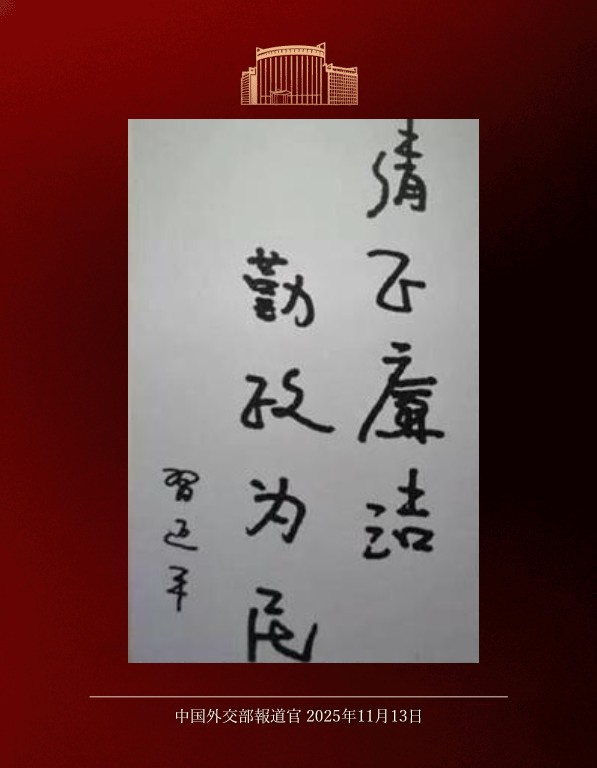 清正廉洁
勤政为民
習近平
中国外交部報道官 2025年11月13日